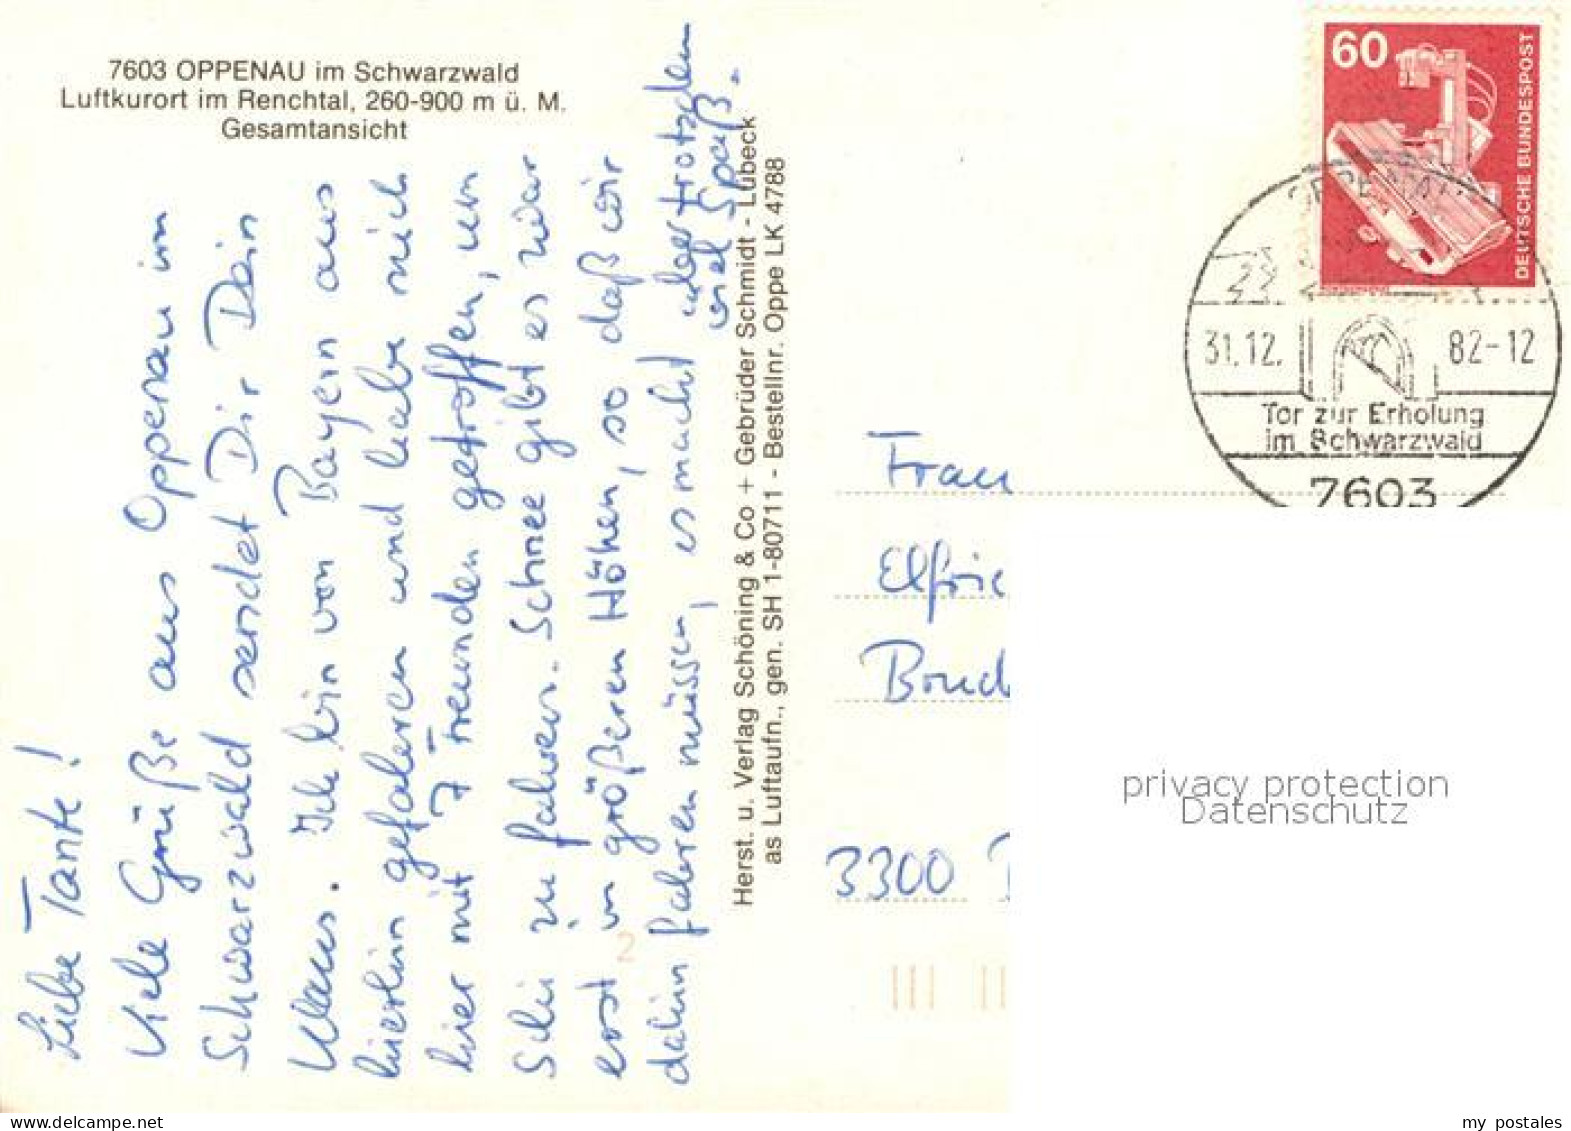 7603 OPPENAU im Schwarzwald
Luftkurort im Renchtal, 260-900 m ü. M.
Gesamtansicht
Liebe Tante!
Viele Grüße aus Oppenau im
Schwarzwald sendet Dir Dein
Klaus. Ich bin von Bayern aus
hierhin gefahren und habe mich
hier mit 7 Freunden getroffen, um
Ski zu fahren. Schnee gibt es zwar
erst in größeren Höhen, so daß wir
dahin fahren müssen, es macht aber trotzdem
viel Spaß.
Herst. u. Verlag Schöning & Co + Gebrüder Schmidt - Lübeck
as Luftaufn., gen. SH 1-80711 - Bestellnr. Oppe LK 4788
60
DEUTSCHE BUNDESPOST
OPPENAU
31.12. 82-12
Tor zur Erholung
im Schwarzwald
7603
Frau
Elfrie
3300
2
privacy protection
Datenschutz
my postales